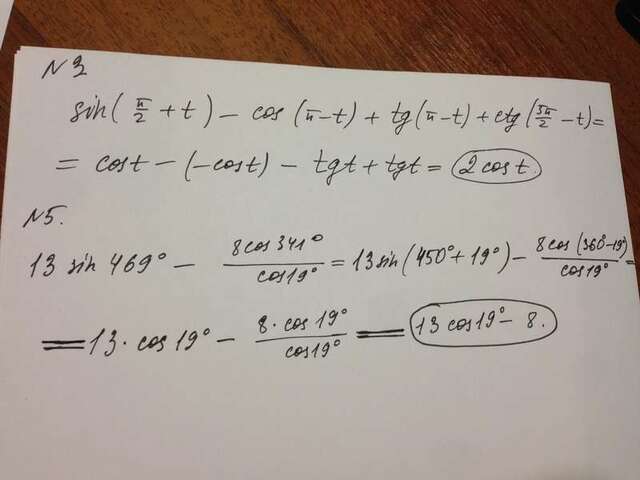 N3
sin(π/2 + t) - cos(π-t) + tg(π-t) + ctg(3π/2 - t) =
= cost - (-cost) - tgt + tgt = 2cost.
N5.
13 sin 469° - 8cos341°/cos19° = 13 sin(450°+19°) - 8cos(360°-19°)/cos19° =
= 13 · cos19° - 8·cos19°/cos19° = 13 cos19° - 8.